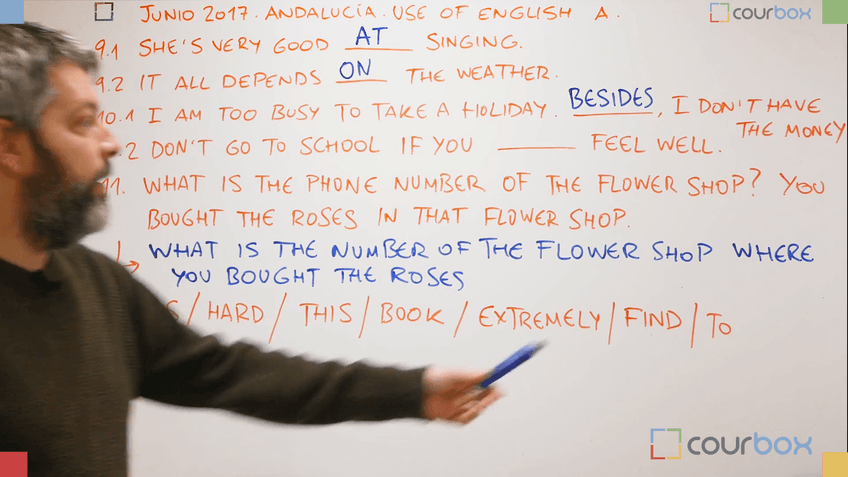 JUNIO 2017. ANDALUCÍA. USE OF ENGLISH A.
courbox
9.1 SHE'S VERY GOOD AT SINGING.
9.2 IT ALL DEPENDS ON THE WEATHER.
10.1 I AM TOO BUSY TO TAKE A HOLIDAY. BESIDES, I DON'T HAVE
THE MONEY
.2 DON'T GO TO SCHOOL IF YOU ______ FEEL WELL.
11. WHAT IS THE PHONE NUMBER OF THE FLOWER SHOP? YOU
BOUGHT THE ROSES IN THAT FLOWER SHOP.
WHAT IS THE NUMBER OF THE FLOWER SHOP WHERE
YOU BOUGHT THE ROSES
/ HARD / THIS / BOOK / EXTREMELY / FIND / TO
courbox